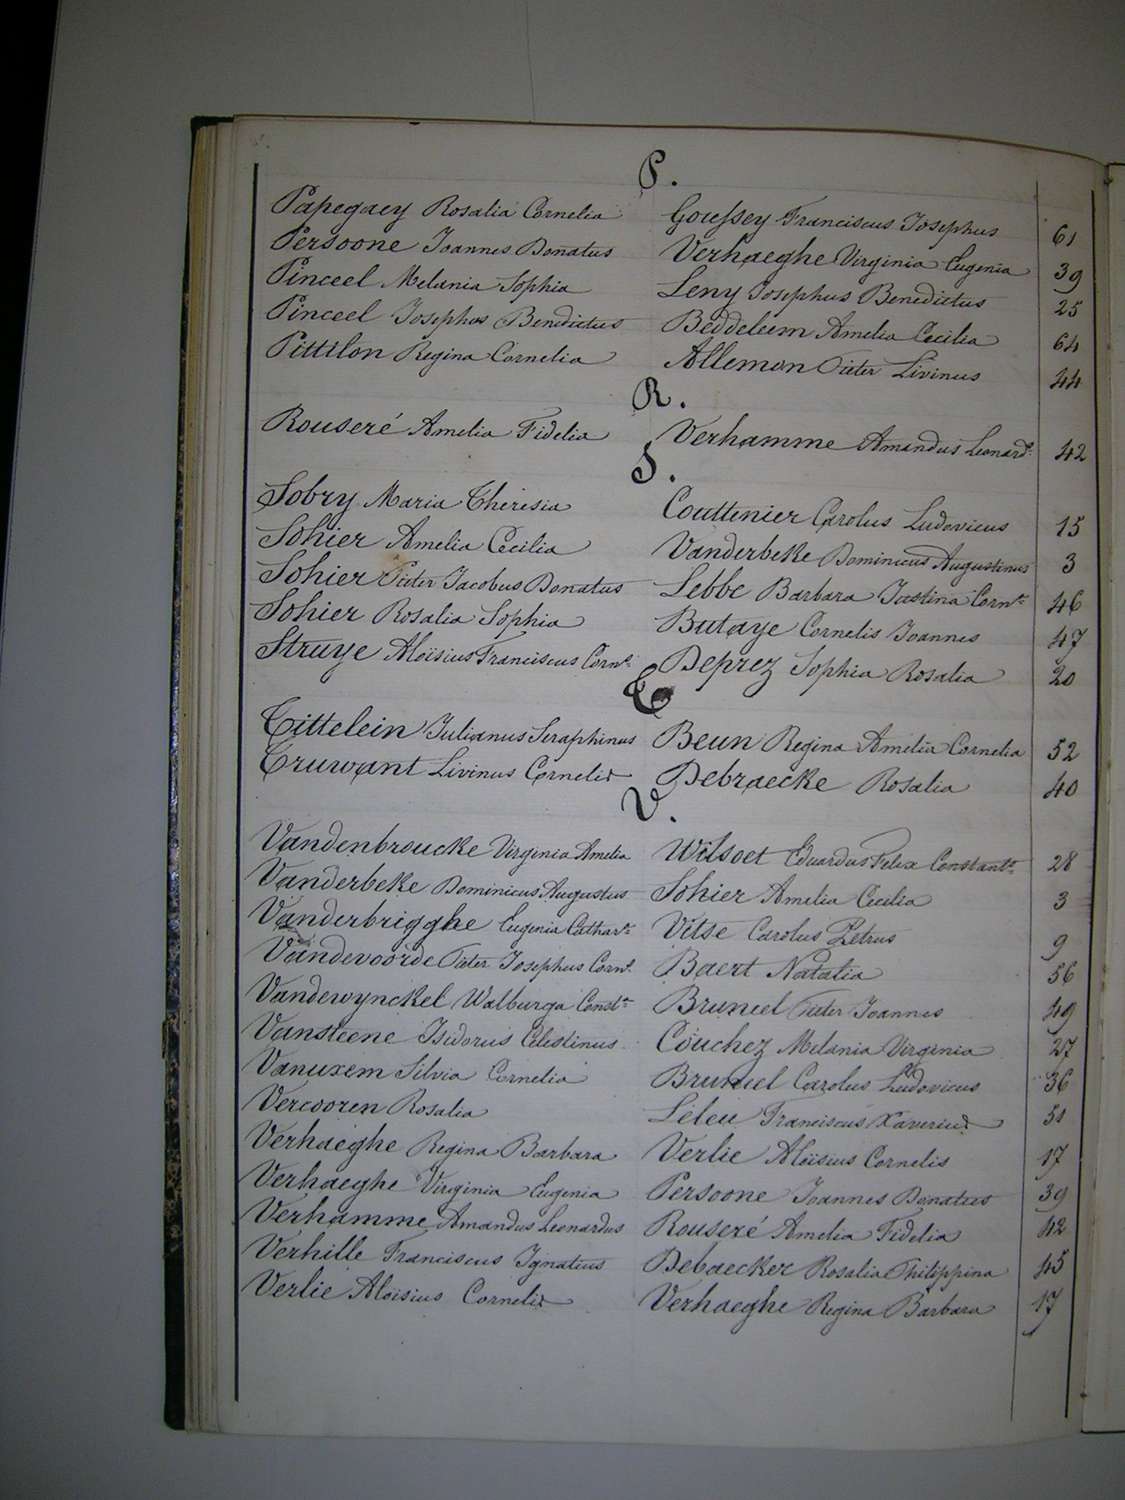 P.
Papegaey Rosalia Cornelia Goussey Franciscus Josephus 61
Persoone Joannes Donatus Verhaeghe Virginia Eugenia 39
Pinceel Melania Sophia Leny Josephus Benedictus 25
Pinceel Josephus Benedictus Beddeleem Amelia Cecilia 64
Pittilon Regina Cornelia Alleman Pieter Livinus 44
R.
Rouseré Amelia Fidelia Verhamme Amandus Leonard.s 42
S.
Sobry Maria Theresia Couttenier Carolus Ludovicus 15
Sohier Amelia Cecilia Vanderbeke Dominicus Augustinus 3
Sohier Pieter Jacobus Donatus Lebbe Barbara Justina Corn.a 46
Sohier Rosalia Sophia Butaye Cornelis Joannes 47
Struye Aloïsius Franciscus Corn.s Deprez Sophia Rosalia 20
T
Tittelein Julianus Seraphinus Beun Regina Amelia Cornelia 52
Truwant Livinus Cornelis Debraecke Rosalia 40
V.
Vandenbroucke Virginia Amelia Wilsoet Eduardus Felix Constant.s 28
Vanderbeke Dominicus Augustus Sohier Amelia Cecilia 3
Vanderbrigghe Eugenia Cathar.a Vitse Carolus Petrus 9
Vandevoorde Pieter Josephus Corn.s Baert Natalia 56
Vandewynckel Walburga Const.a Bruneel Pieter Joannes 49
Vansteene Isidorus Celestinus Couchez Melania Virginia 27
Vanuxem Silvia Cornelia Bruneel Carolus Ludovicus 36
Vercooren Rosalia Leleu Franciscus Xaverius 51
Verhaeghe Regina Barbara Verlie Aloïsius Cornelis 17
Verhaeghe Virginia Eugenia Persoone Joannes Donatus 39
Verhamme Amandus Leonardus Rouseré Amelia Fidelia 42
Verhille Franciscus Ignatius Debaecker Rosalia Philippina 45
Verlie Aloïsius Cornelis Verhaeghe Regina Barbara 17